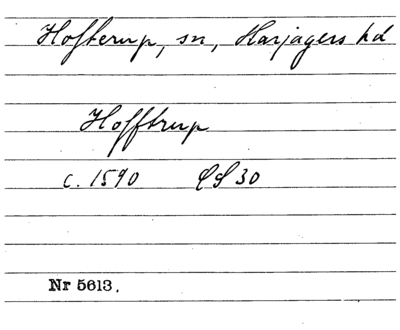 Hofterup, sn, Harjagers hd
Hofftrup
c. 1590 CS 30
Nr 5613.